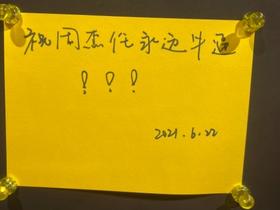 祝周杰伦永远牛逼
！！！
2021.6.22